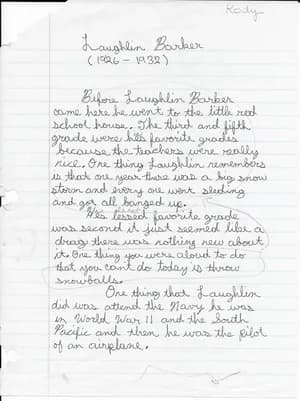 Kody
Laughlin Barker
(1926 - 1932)
Before Laughlin Barker
came here he went to the little red
school house. The third and fifth
grade were his favorite grades
because the teachers were really
nice. One thing Laughlin remembers
is that one year there was a big snow
storm and every one went sleding
and got all banged up.
His lessed favorite grade
was second it just seemed like a
drag there was nothing new about
it. One thing you were aloud to do
that you cant do today is throw
snowballs.
One thing that Laughlin
did was attend the Navy he was
in World War II and the South
Pacific and then he was the pilot
of an airplane.